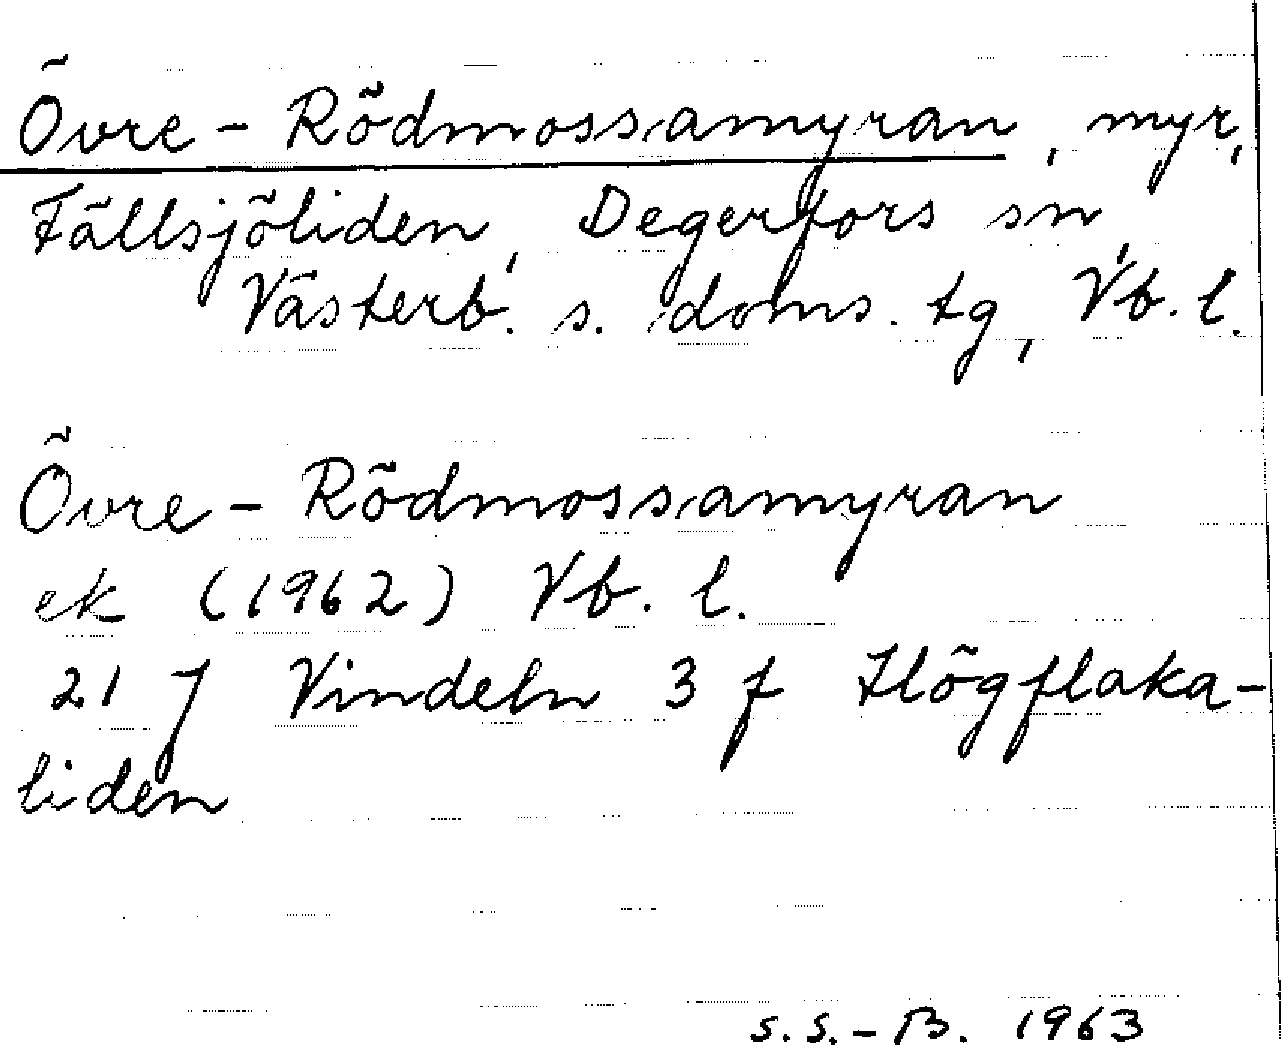 Övre - Rödmossamyran, myr,
Fällsjöliden, Degerfors sn,
Västerb. s. doms. tg, Vb. l.
Övre - Rödmossamyran
ek (1962) Vb. l.
21 J Vindeln 3 f Högflaka-
liden
S.S.-B. 1963